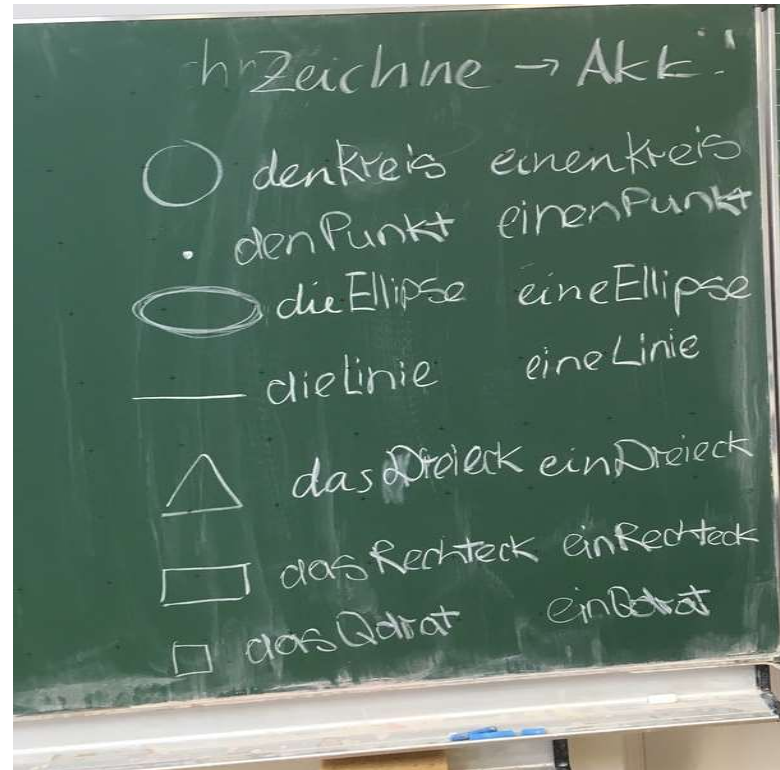 Zeichne → Akk!
den Kreis einen Kreis
den Punkt einen Punkt
die Ellipse eine Ellipse
die Linie eine Linie
das Dreieck ein Dreieck
das Rechteck ein Rechteck
das Qdrat ein Qdrat